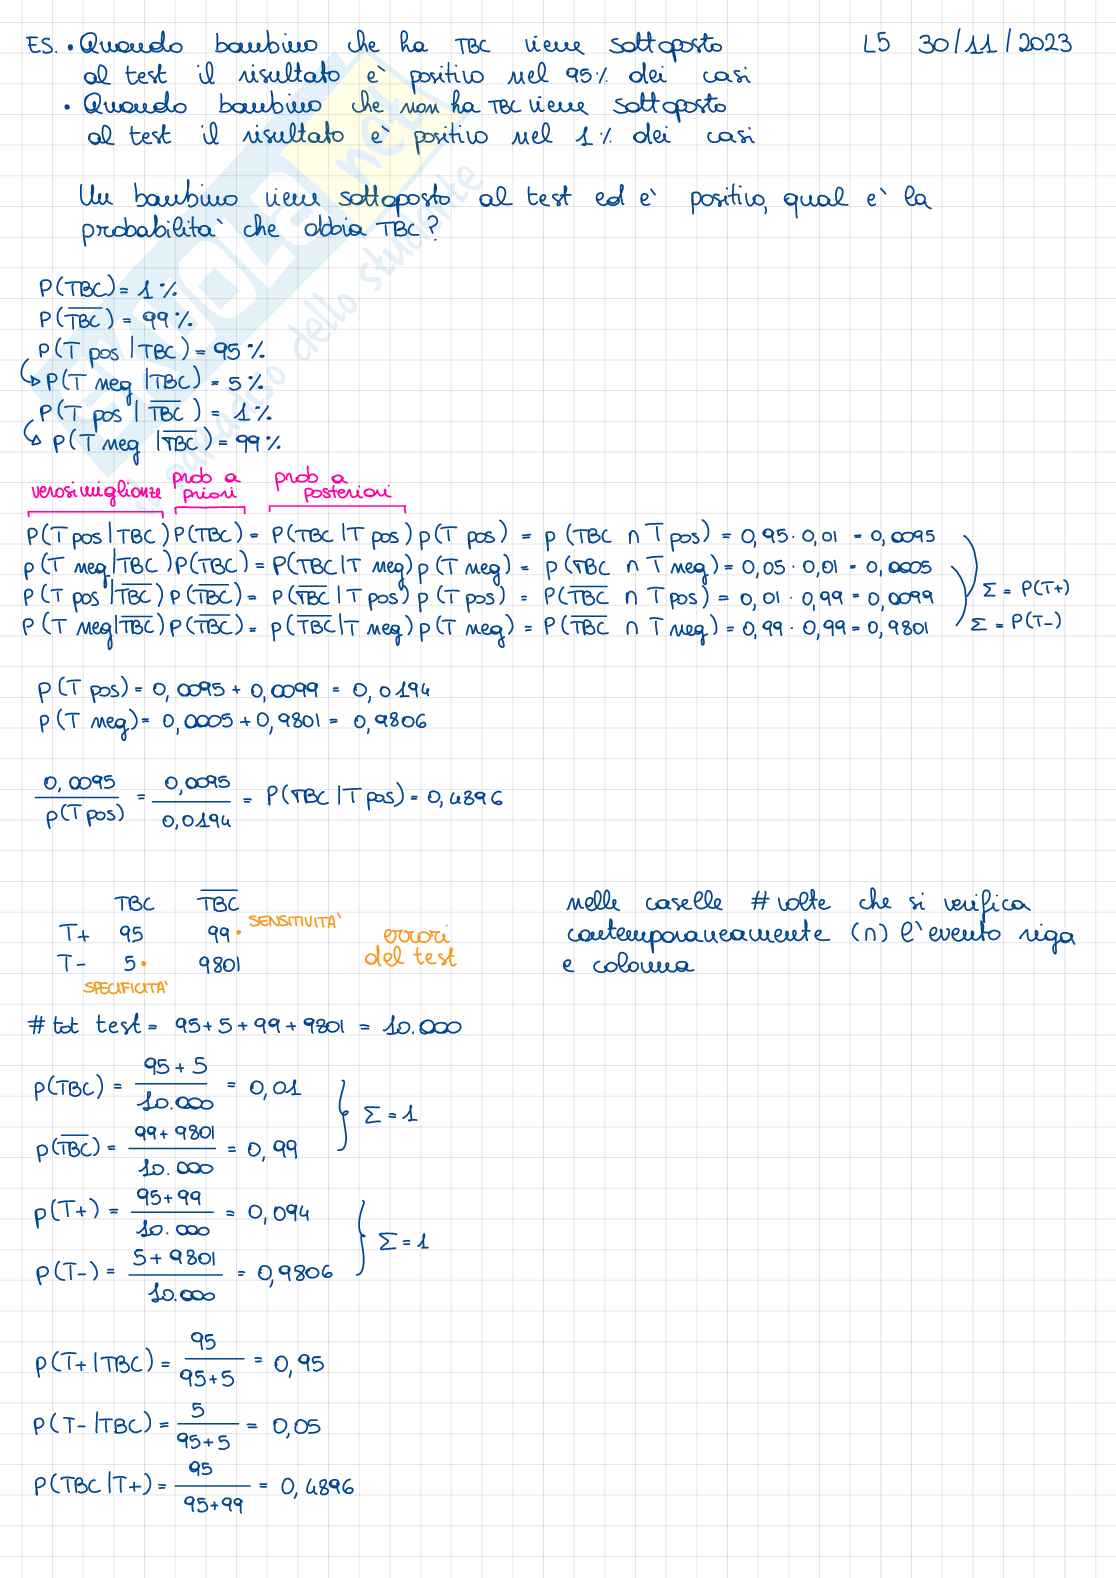 ES. • Quando bambino che ha TBC viene sottoposto L5 30/11/2023
al test il risultato è positivo nel 95% dei casi
• Quando bambino che non ha TBC viene sottoposto
al test il risultato è positivo nel 1% dei casi
Un bambino viene sottoposto al test ed è positivo, qual è la
probabilità che abbia TBC?
P(TBC) = 1%
P(T̅B̅C̅) = 99%
P(T pos | TBC) = 95%
↳ P(T neg | TBC) = 5%
P(T pos | T̅B̅C̅) = 1%
↳ P(T neg | T̅B̅C̅) = 99%
verosimiglianze prob a priori prob a posteriori
P(T pos | TBC) P(TBC) = P(TBC | T pos) p(T pos) = p(TBC ∩ T pos) = 0,95 · 0,01 = 0,0095
p(T neg | TBC) P(TBC) = P(TBC | T neg) p(T neg) = p(TBC ∩ T neg) = 0,05 · 0,01 = 0,0005
p(T pos | T̅B̅C̅) P(T̅B̅C̅) = P(T̅B̅C̅ | T pos) p(T pos) = P(T̅B̅C̅ ∩ T pos) = 0,01 · 0,99 = 0,0099 Σ = P(T+)
p(T neg | T̅B̅C̅) P(T̅B̅C̅) = p(T̅B̅C̅ | T neg) p(T neg) = P(T̅B̅C̅ ∩ T neg) = 0,99 · 0,99 = 0,9801 Σ = P(T-)
p(T pos) = 0,0095 + 0,0099 = 0,0194
p(T neg) = 0,0005 + 0,9801 = 0,9806
0,0095 / p(T pos) = 0,0095 / 0,0194 = P(TBC | T pos) = 0,4896
TBC T̅B̅C̅
T+ 95 99 • SENSITIVITÀ
T- 5 • 9801
SPECIFICITÀ
errori
del test
nelle caselle # volte che si verifica
contemporaneamente (∩) l'evento riga
e colonna
# tot test = 95 + 5 + 99 + 9801 = 10.000
p(TBC) = 95 + 5 / 10.000 = 0,01
p(T̅B̅C̅) = 99 + 9801 / 10.000 = 0,99
Σ = 1
p(T+) = 95 + 99 / 10.000 = 0,094
p(T-) = 5 + 9801 / 10.000 = 0,9806
Σ = 1
p(T+ | TBC) = 95 / 95+5 = 0,95
p(T- | TBC) = 5 / 95+5 = 0,05
p(TBC | T+) = 95 / 95+99 = 0,4896